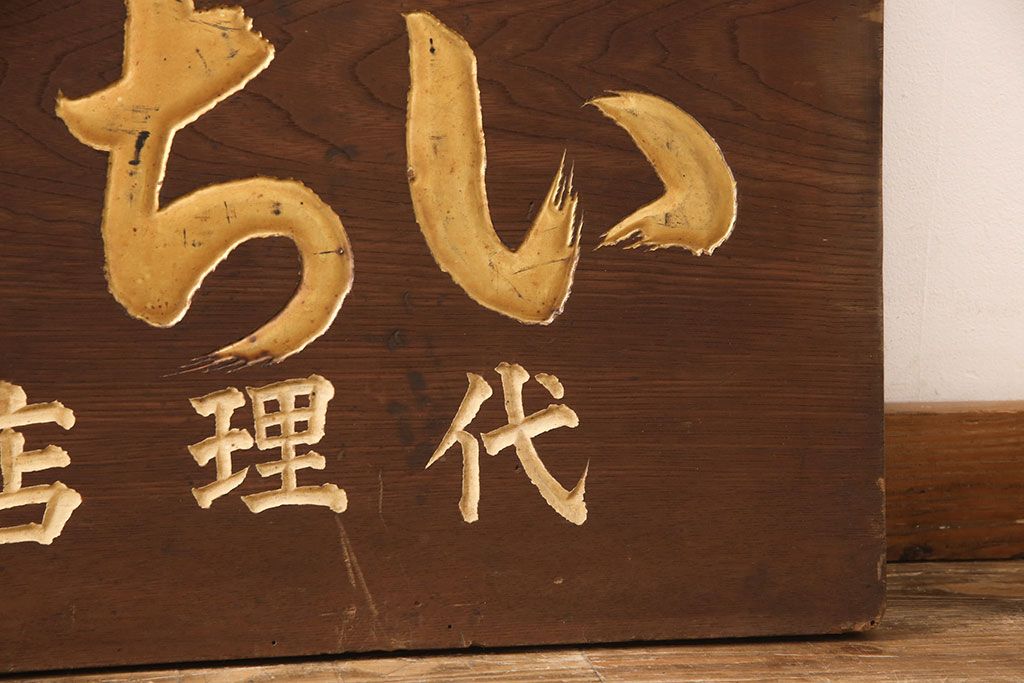 いち
代理店